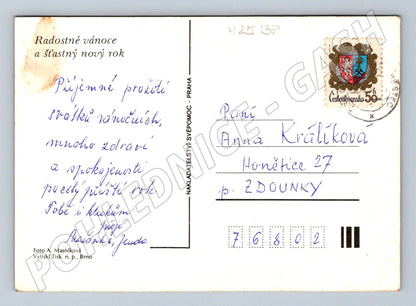 H 25 13P
Radostné vánoce
a šťastný nový rok
Příjemné prožití
svátků vánočních,
mnoho zdraví
a spokojenosti
po celý příští rok
Tobě i klukům
přejí
Mařánka, Jenda
Foto A. Mastníková
Vytiskl Tisk, n. p., Brno
NAKLADATELSTVÍ SVĚPOMOC - PRAHA
Československo 50 h
Paní
Anna Králíková
Honětice 27
p. ZDOUNKY
76802
POHLEDNICE - GASH